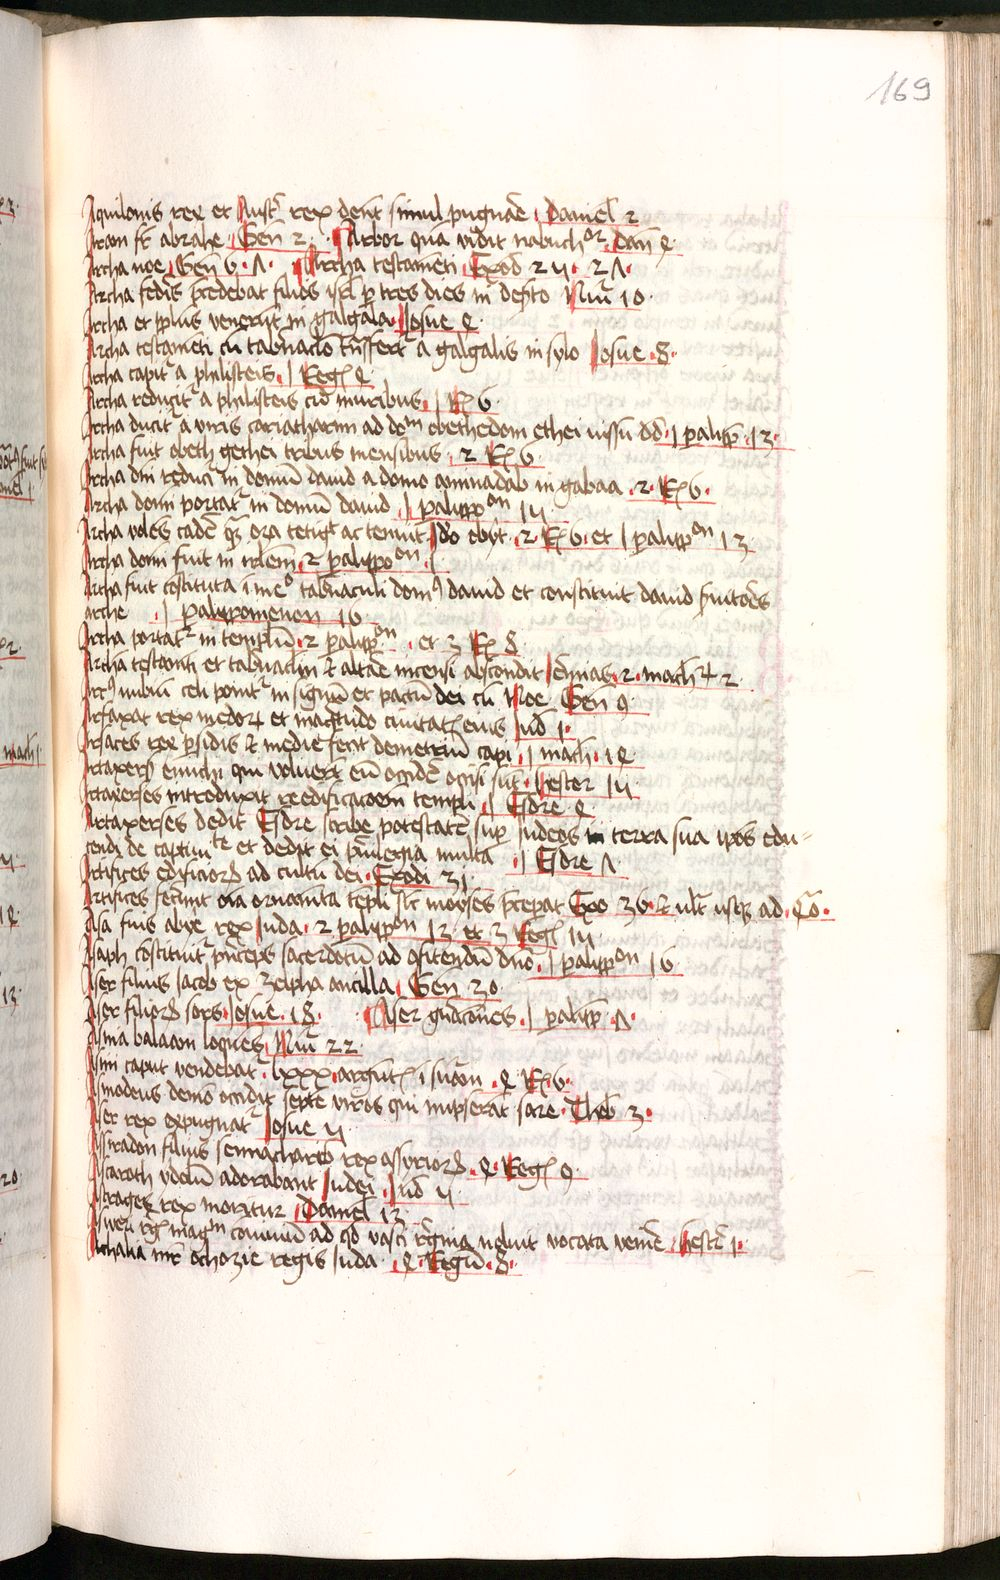 169
Aquilonis rex et Austr rex dent simul pugnare Daniel 2
Aram fr abrahe Gen 2. Arbor quam vidit nabuchor. Dan 4
Archa noe Gen 6. Λ. Archa testamenti Exod 24. 2Λ.
Archa federis precedebat filios isrl per tres dies in deserto Num 10.
Archa et pplus venerunt in galgala Josue 4.
Archa testamenti cum tabernaclo transfertur a galgalis in sylo Josue. 8.
Archa capitur a philisteis. 1 Regum 4
Archa reducitur a philisteis cum muribus. 1 R 6.
Archa ducitur a viris cariatharim ad dom obethedom gethei iussu dd. 1 paralip. 13.
Archa fuit obeth gethei tribus mensibus. 2 R 6.
Archa dni reducitur in domum david a domo aminadab in gabaa. 2. R 6.
Archa domi portatur in domum david. 1 paralippon 14
Archa volens cadere oza tetigit ac tenuit. Ideo obijt. 2 R 6. et 1 paralippon 13.
Archa domi fuit in irlem. 2 paralippon. 1.
Archa fuit costituta i meo tabernaculi domus david et constituit david servitores
arche. 1 paralippomenon 16.
Archa portatur in templum. 2 paralippon. et 3 R 8
Archa testamenti et tabernaclm et altare incensi abscondit Jeremias. 2. mach 2.
Arcus nubium celi ponitur in signum et pactum dei cum Noe. Gen 9.
Arfaxat rex medorum et magnitudo civitatis eius Jud 1.
Arsaces rex persidis et medie fecit demetrium capi. 1 mach. 14.
Artaxersis eunuchi qui voluerunt eum occidere occisi sunt. Hester 14.
Artaxerses introduxit reedificacoem templi. 1 Esdre 4
Artaxerses dedit Esdre scribe potestatem super Judeos in terra sua ipos edu-
cendi de captivite et dedit ei privilegia multa. 1 Esdre Λ
Artifices edificiorum ad cultum dei. Exodi 31.
Artifices fecerunt oia ornamenta templi sicut moyses preceperat Exo 36. et ult usque ad. 40.
Asa filius abye rex Juda. 2 paralippon 13 et 3 Regum 14
Asaph costituitur princeps sacerdotum ad confitendum dno. 1 paralippon 16.
Aser filius Jacob ex zelpha ancilla Gen 30
Aser filiorum sors Josue. 18. Aser generaciones. 1 paralip. Λ.
Asina balaam loquens Num 22.
Asini caput vendebatur lxxx. argenteis i suam. 4 R. 6.
Asmodeus demon occidit septem viros qui nupserant sare. Thob 3.
Aser rex expugnatur Josue 11
Assradon filius sennacharib rex assyriorum. 4. Regum 9.
Astaroth ydolum adorabant Judei. Jud 4.
Astrages rex moritur Daniel 13.
Asweri regis magm convivium ad quod vasti regina noluit vocata venire. hestr 1.
Athalia mr ochozie regis Juda. 4. Regum. 8.